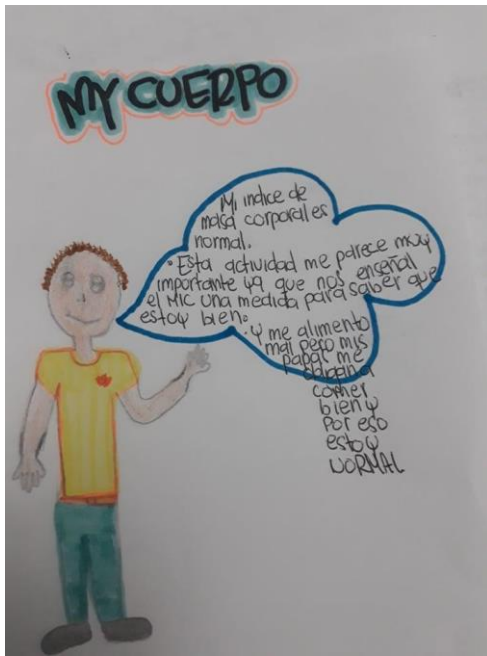 MY CUERPO
Mi indice de
masa corporal es
normal.
• Esta actividad me parece muy
importante ya que nos enseñal
el MIC una medida para saber que
estoy bien.
• Y me alimento
mal pero mis
papas me
obligan a
comer
bien y
por eso
estoy
NORMAL